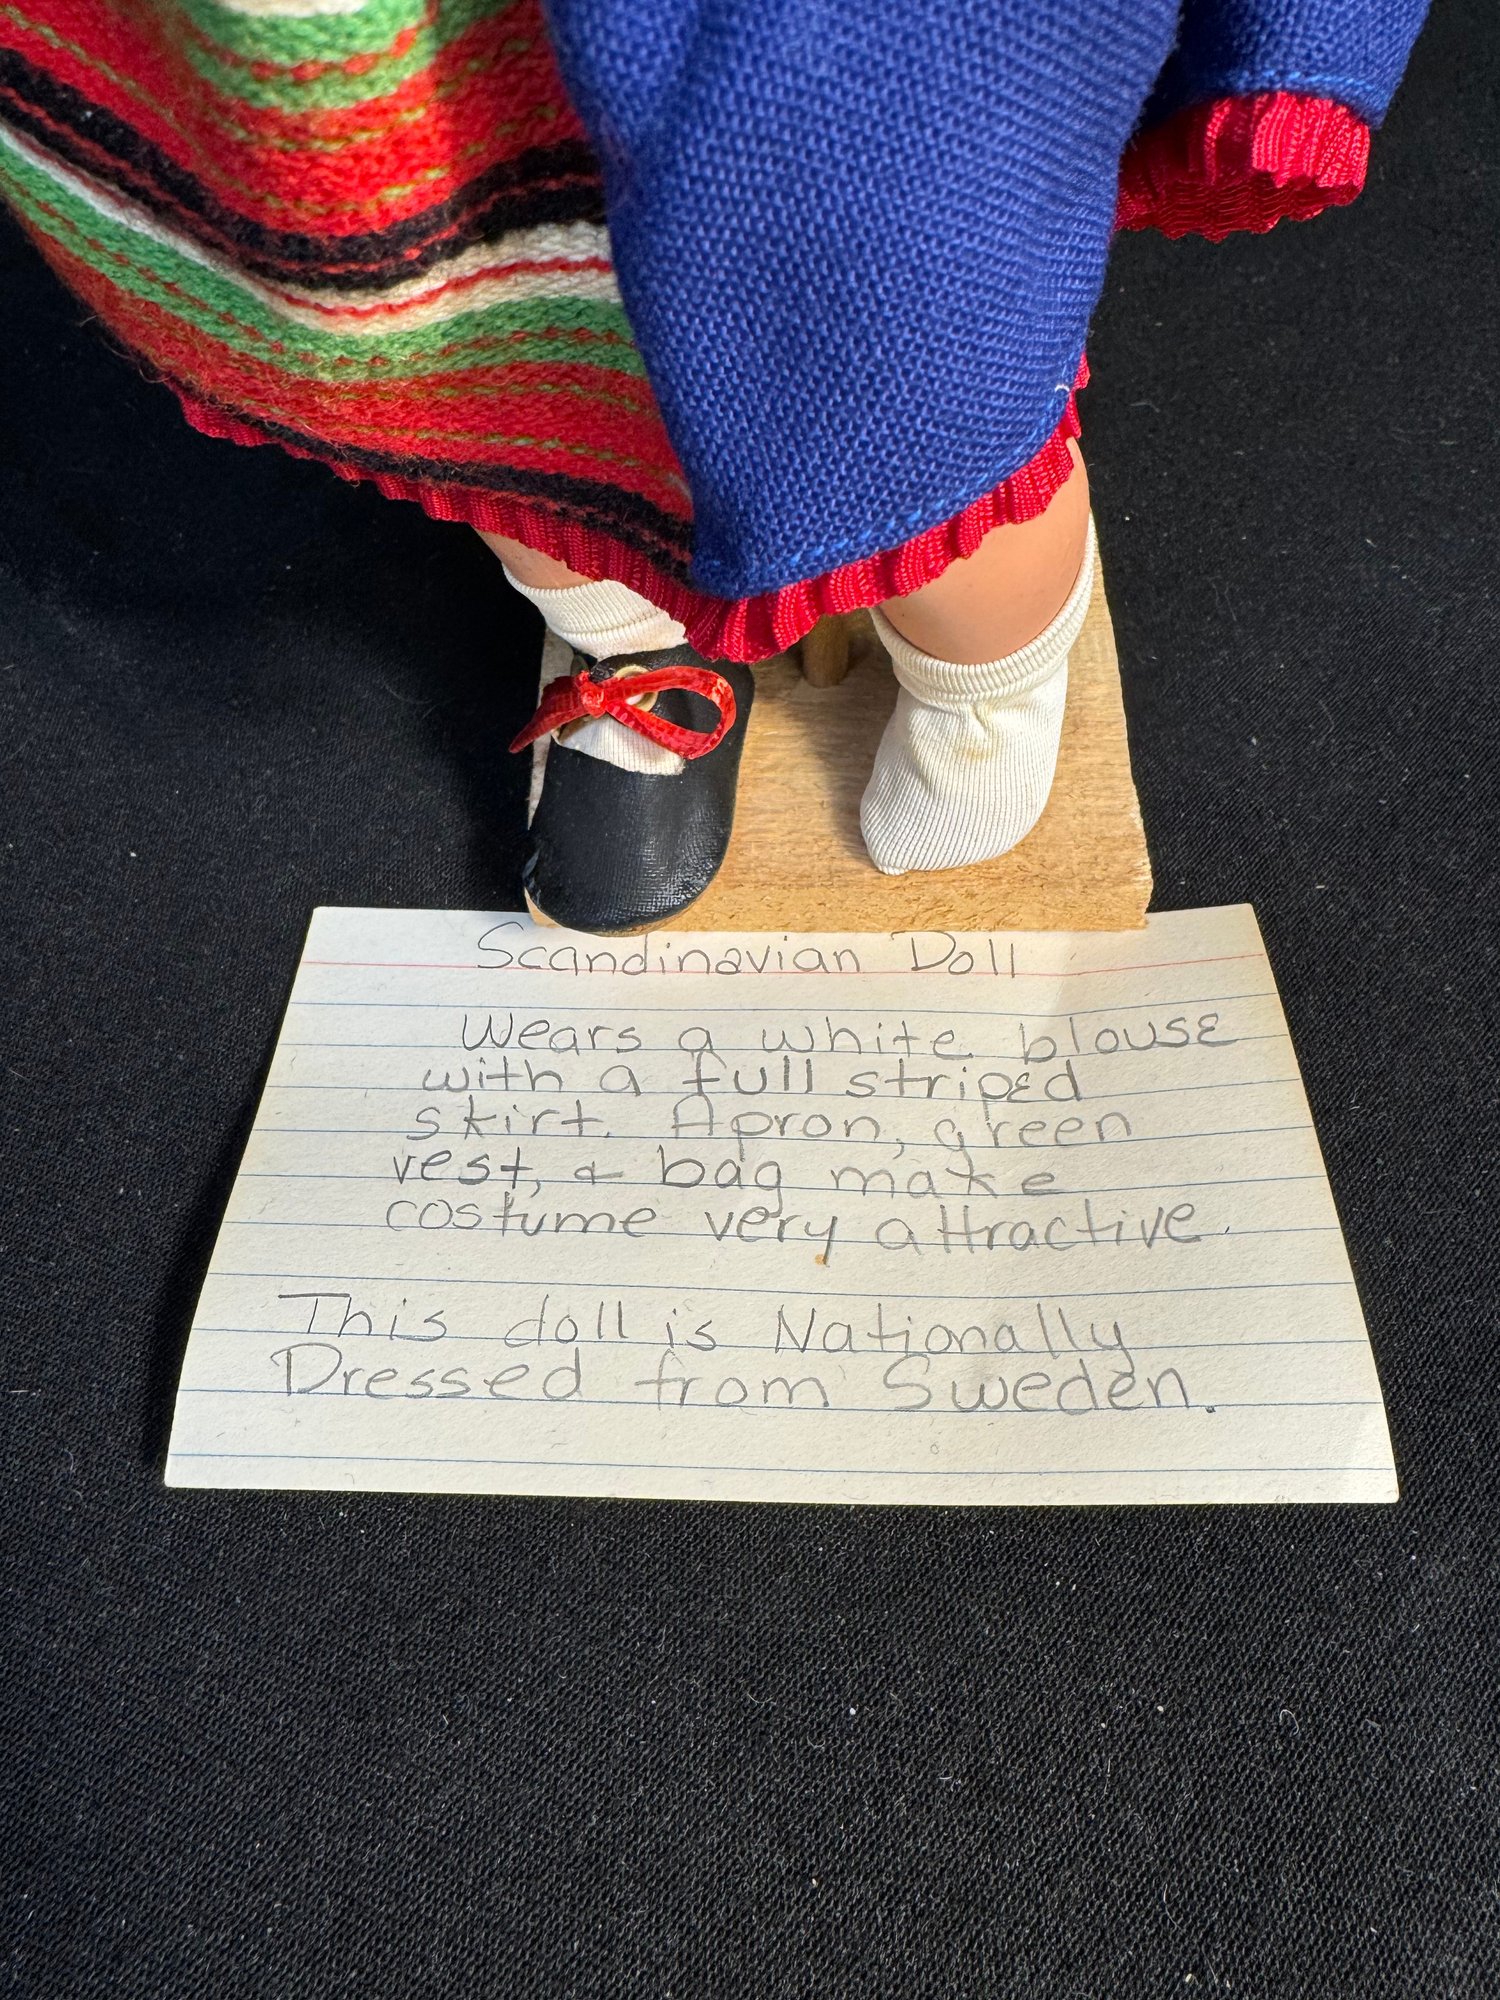 Scandinavian Doll
Wears a white blouse
with a full striped
skirt. Apron, green
vest, & bag make
costume very attractive.
This doll is Nationally
Dressed from Sweden.